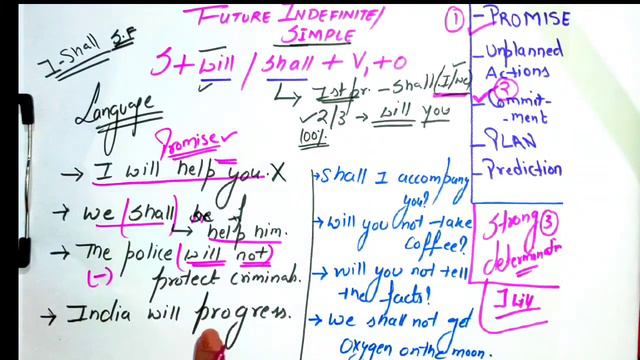 Future Indefinite/
Simple
I - Shall S.F
S + will / shall + V1 + O
1st pr. - Shall (I/we)
2/3 → will you
100%
Language
Promise ✓
→ I will help you. X
→ we (shall) be
→ help him.
→ The police (will not)
(-) protect criminals.
→ India will progress.
→ Shall I accompany
you?
→ will you not take
coffee?
→ will you not tell
the facts?
→ We shall not get
Oxygen on the moon.
① - PROMISE
- Unplanned
Actions
②
- Commit-
ment
- PLAN
- Prediction
Strong ③
determination